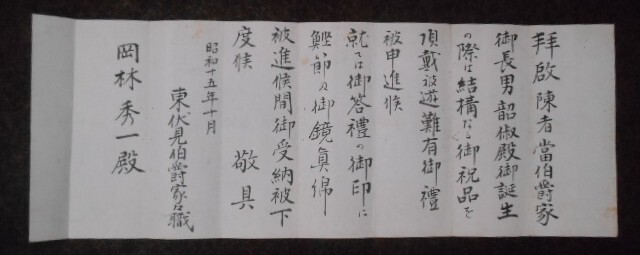 拜啓陳者當伯爵家
御長男韶俶殿御誕生
の際は結構なる御祝品を
頂戴被遊難有御禮
被申進候
就ては御答禮の御印に
鰹節及御鏡真綿
被進候間御受納被下
度候　敬具
昭和十五年十月
東伏見伯爵家家職
岡林秀一殿